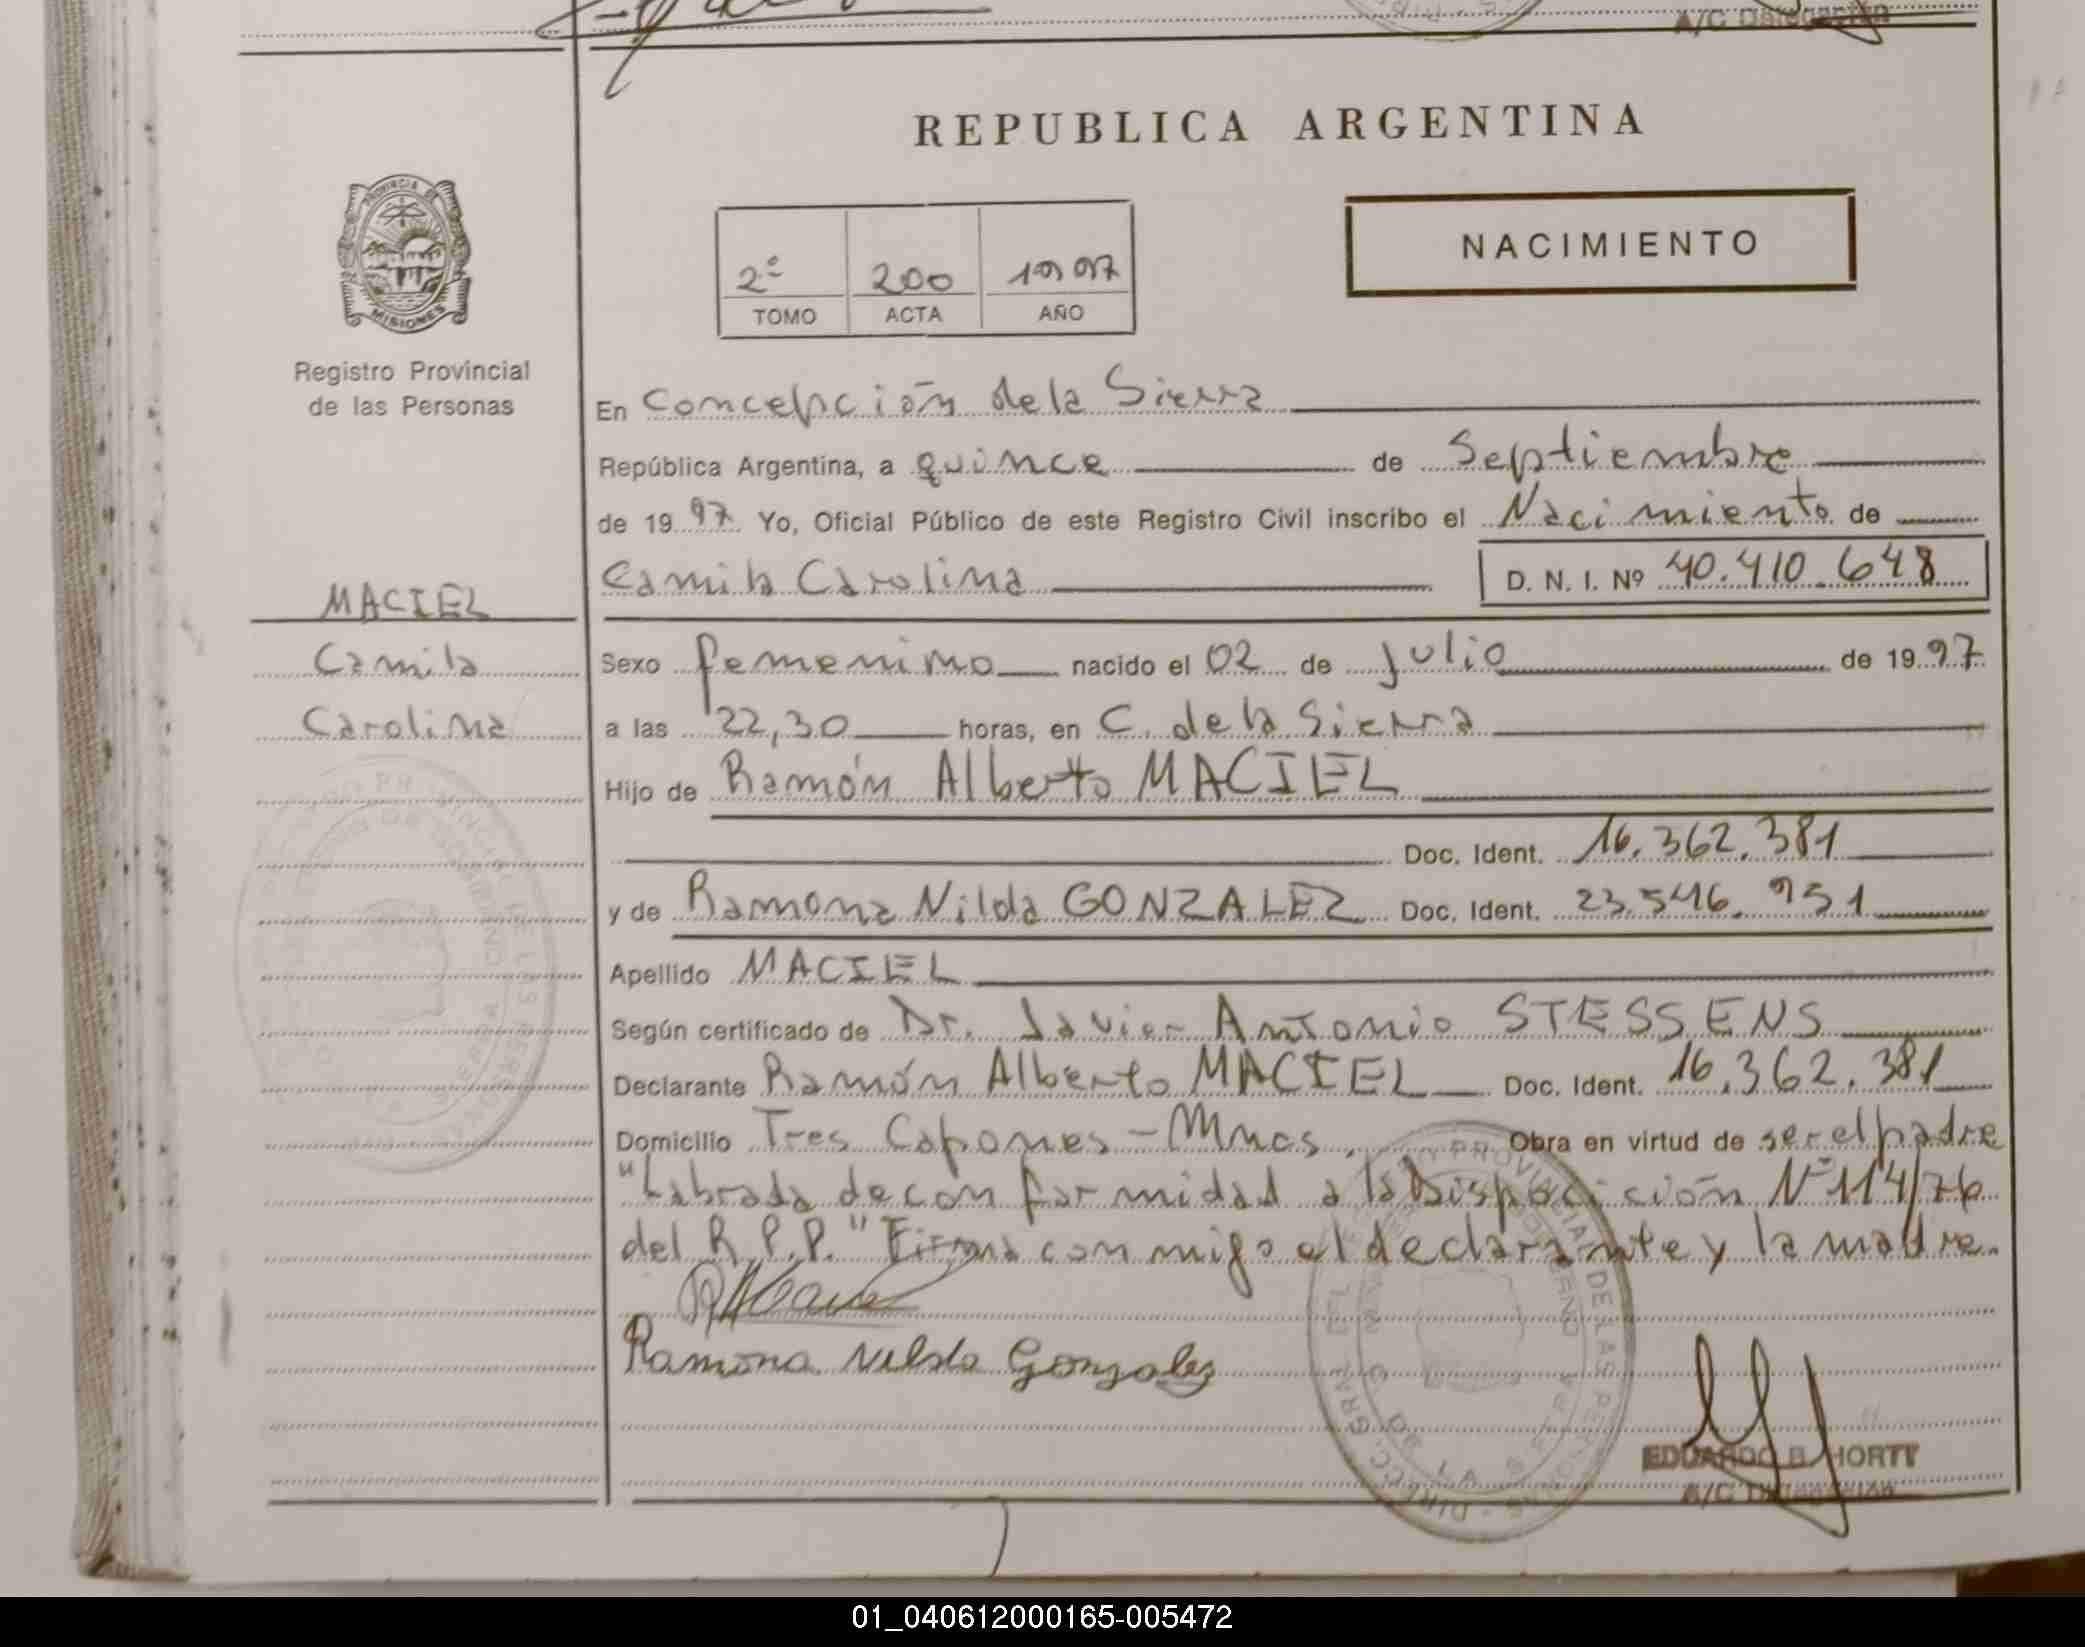 A/C Delegación
REPUBLICA ARGENTINA
PROVINCIA DE
MISIONES
Registro Provincial
de las Personas
2º 200 1997
TOMO ACTA AÑO
NACIMIENTO
En Concepción de la Sierra
República Argentina, a quince de Septiembre
de 1997 Yo, Oficial Público de este Registro Civil inscribo el Nacimiento de
Camila Carolina D. N. I. Nº 40.410.648
MACIEL
Camila
Carolina
Sexo femenino nacido el 02 de Julio de 1997
a las 22,30 horas, en C. de la Sierra
Hijo de Ramón Alberto MACIEL
Doc. Ident. 16.362.381
y de Ramona Nilda GONZALEZ Doc. Ident. 23.546.951
Apellido MACIEL
Según certificado de Dr. Javier Antonio STESSENS
Declarante Ramón Alberto MACIEL Doc. Ident. 16.362.381
Domicilio Tres Capones - Mnes. Obra en virtud de ser el padre
"Labrada de conformidad a la Disposición Nº 114/76
del R.P.P." Firma conmigo el declarante y la madre.
Ramona Nilda Gonzalez
EDUARDO B. HORTT
A/C Delegación
01_040612000165-005472